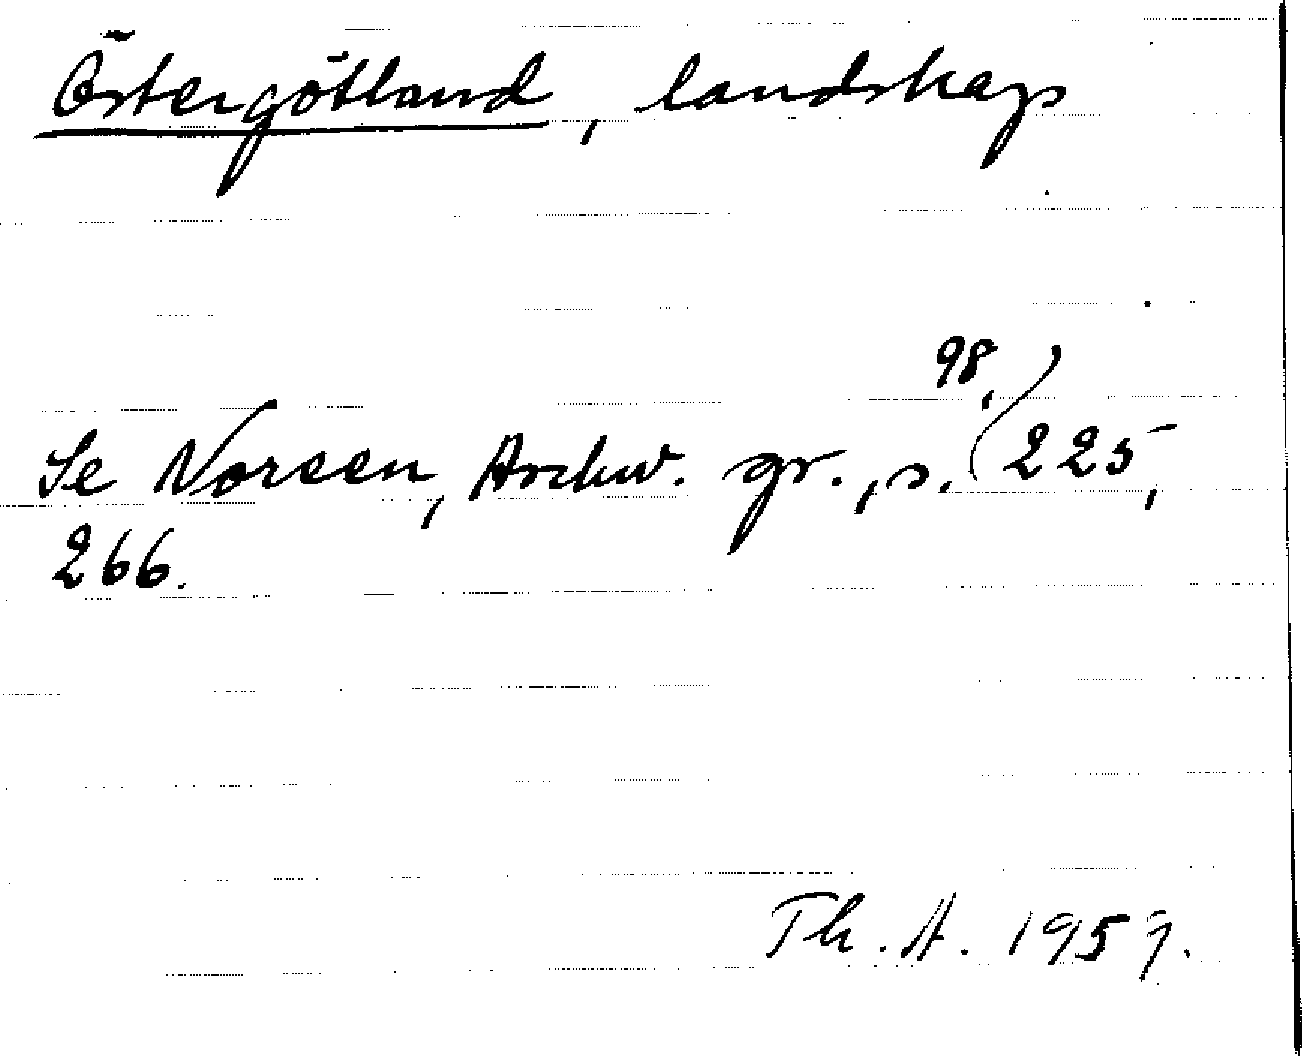 Östergötland, landskap
Se Noreen, Aschw. gr., s. 98, 225,
266.
Th. A. 1959.